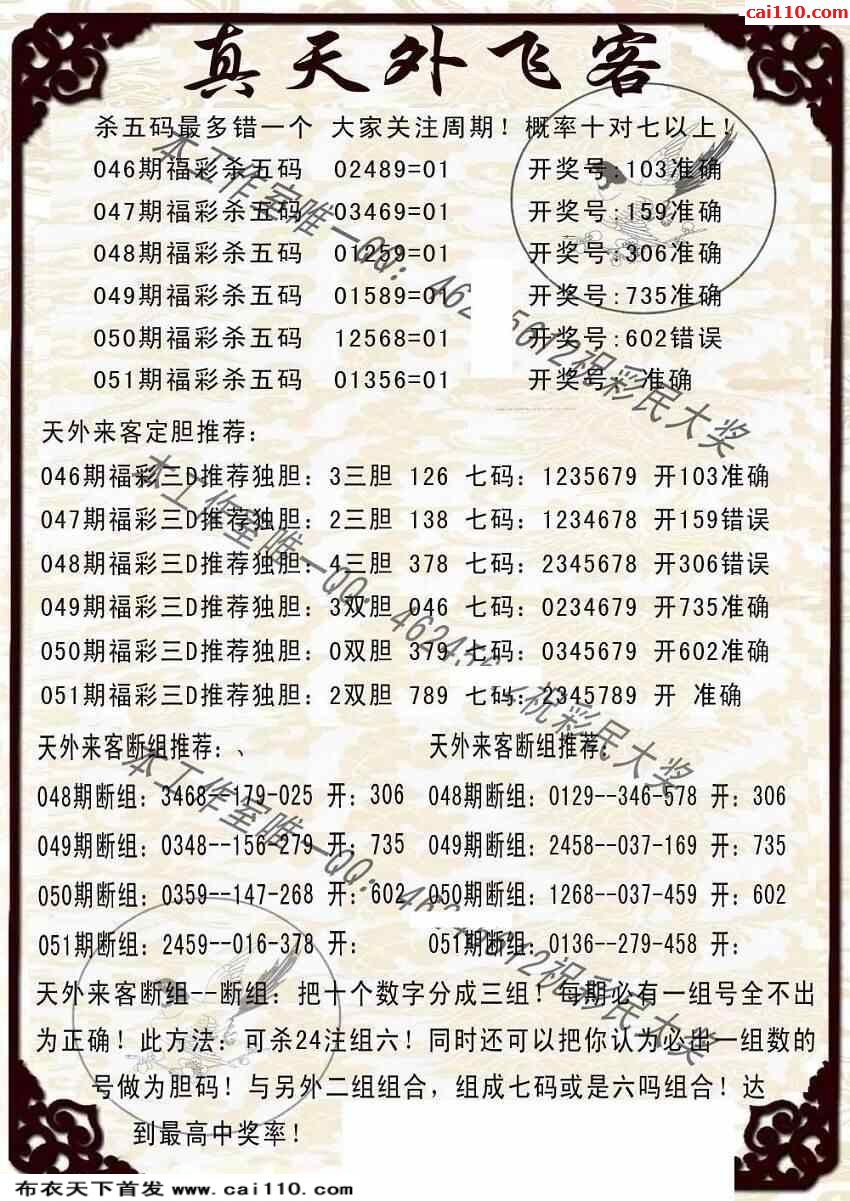 cai110.com
真天外飞客
杀五码最多错一个 大家关注周期！概率十对七以上！
046期福彩杀五码 02489=01 开奖号:103准确
047期福彩杀五码 03469=01 开奖号:159准确
048期福彩杀五码 01259=01 开奖号:306准确
049期福彩杀五码 01589=01 开奖号:735准确
050期福彩杀五码 12568=01 开奖号:602错误
051期福彩杀五码 01356=01 开奖号: 准确
天外来客定胆推荐：
046期福彩三D推荐独胆：3三胆 126 七码：1235679 开103准确
047期福彩三D推荐独胆：2三胆 138 七码：1234678 开159错误
048期福彩三D推荐独胆：4三胆 378 七码：2345678 开306错误
049期福彩三D推荐独胆：3双胆 046 七码：0234679 开735准确
050期福彩三D推荐独胆：0双胆 379 七码：0345679 开602准确
051期福彩三D推荐独胆：2双胆 789 七码：2345789 开 准确
天外来客断组推荐：、 天外来客断组推荐：
048期断组：3468--179-025 开：306 048期断组：0129--346-578 开：306
049期断组：0348--156-279 开：735 049期断组：2458--037-169 开：735
050期断组：0359--147-268 开：602 050期断组：1268--037-459 开：602
051期断组：2459--016-378 开： 051期断组：0136--279-458 开：
天外来客断组--断组：把十个数字分成三组！每期必有一组号全不出
为正确！此方法：可杀24注组六！同时还可以把你认为必出一组数的
号做为胆码！与另外二组组合，组成七码或是六吗组合！达
到最高中奖率！
本工作室唯一QQ：祝彩民大奖
本工作室唯一QQ：祝彩民大奖
本工作室唯一QQ：祝彩民大奖
布衣天下首发 www.cai110.com